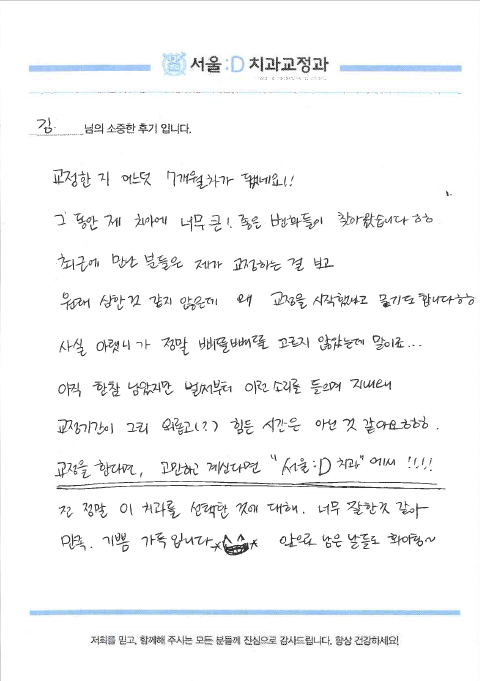 서울:D 치과교정과
김 님의 소중한 후기 입니다.
교정한 지 어느덧 7개월차가 됐네요!!
그 동안 제 치아에 너무 큰! 좋은 변화들이 찾아왔습니다ㅎㅎ
최근에 만난 분들은 제가 교정하는 걸 보고
원래 심한 것 같지 않은데 왜 교정을 시작했냐고 묻기도 합니다ㅎㅎ
사실 아랫니가 정말 삐뚤빼뚤 고르지 않았는데 말이죠...
아직 한참 남았지만 벌써부터 이런 소리를 들으며 지내니
교정기간이 그리 외롭고(?) 힘든 시간은 아닌 것 같아요ㅎㅎㅎ.
교정을 한다면, 고민하고 계신다면 "서울:D 치과"에서 !!!!
전 정말 이 치과를 선택한 것에 대해. 너무 잘한것 같아
만족. 기쁨 가득입니다 앞으로 남은 날들도 화이팅~
저희를 믿고, 함께해 주시는 모든 분들께 진심으로 감사드립니다. 항상 건강하세요!